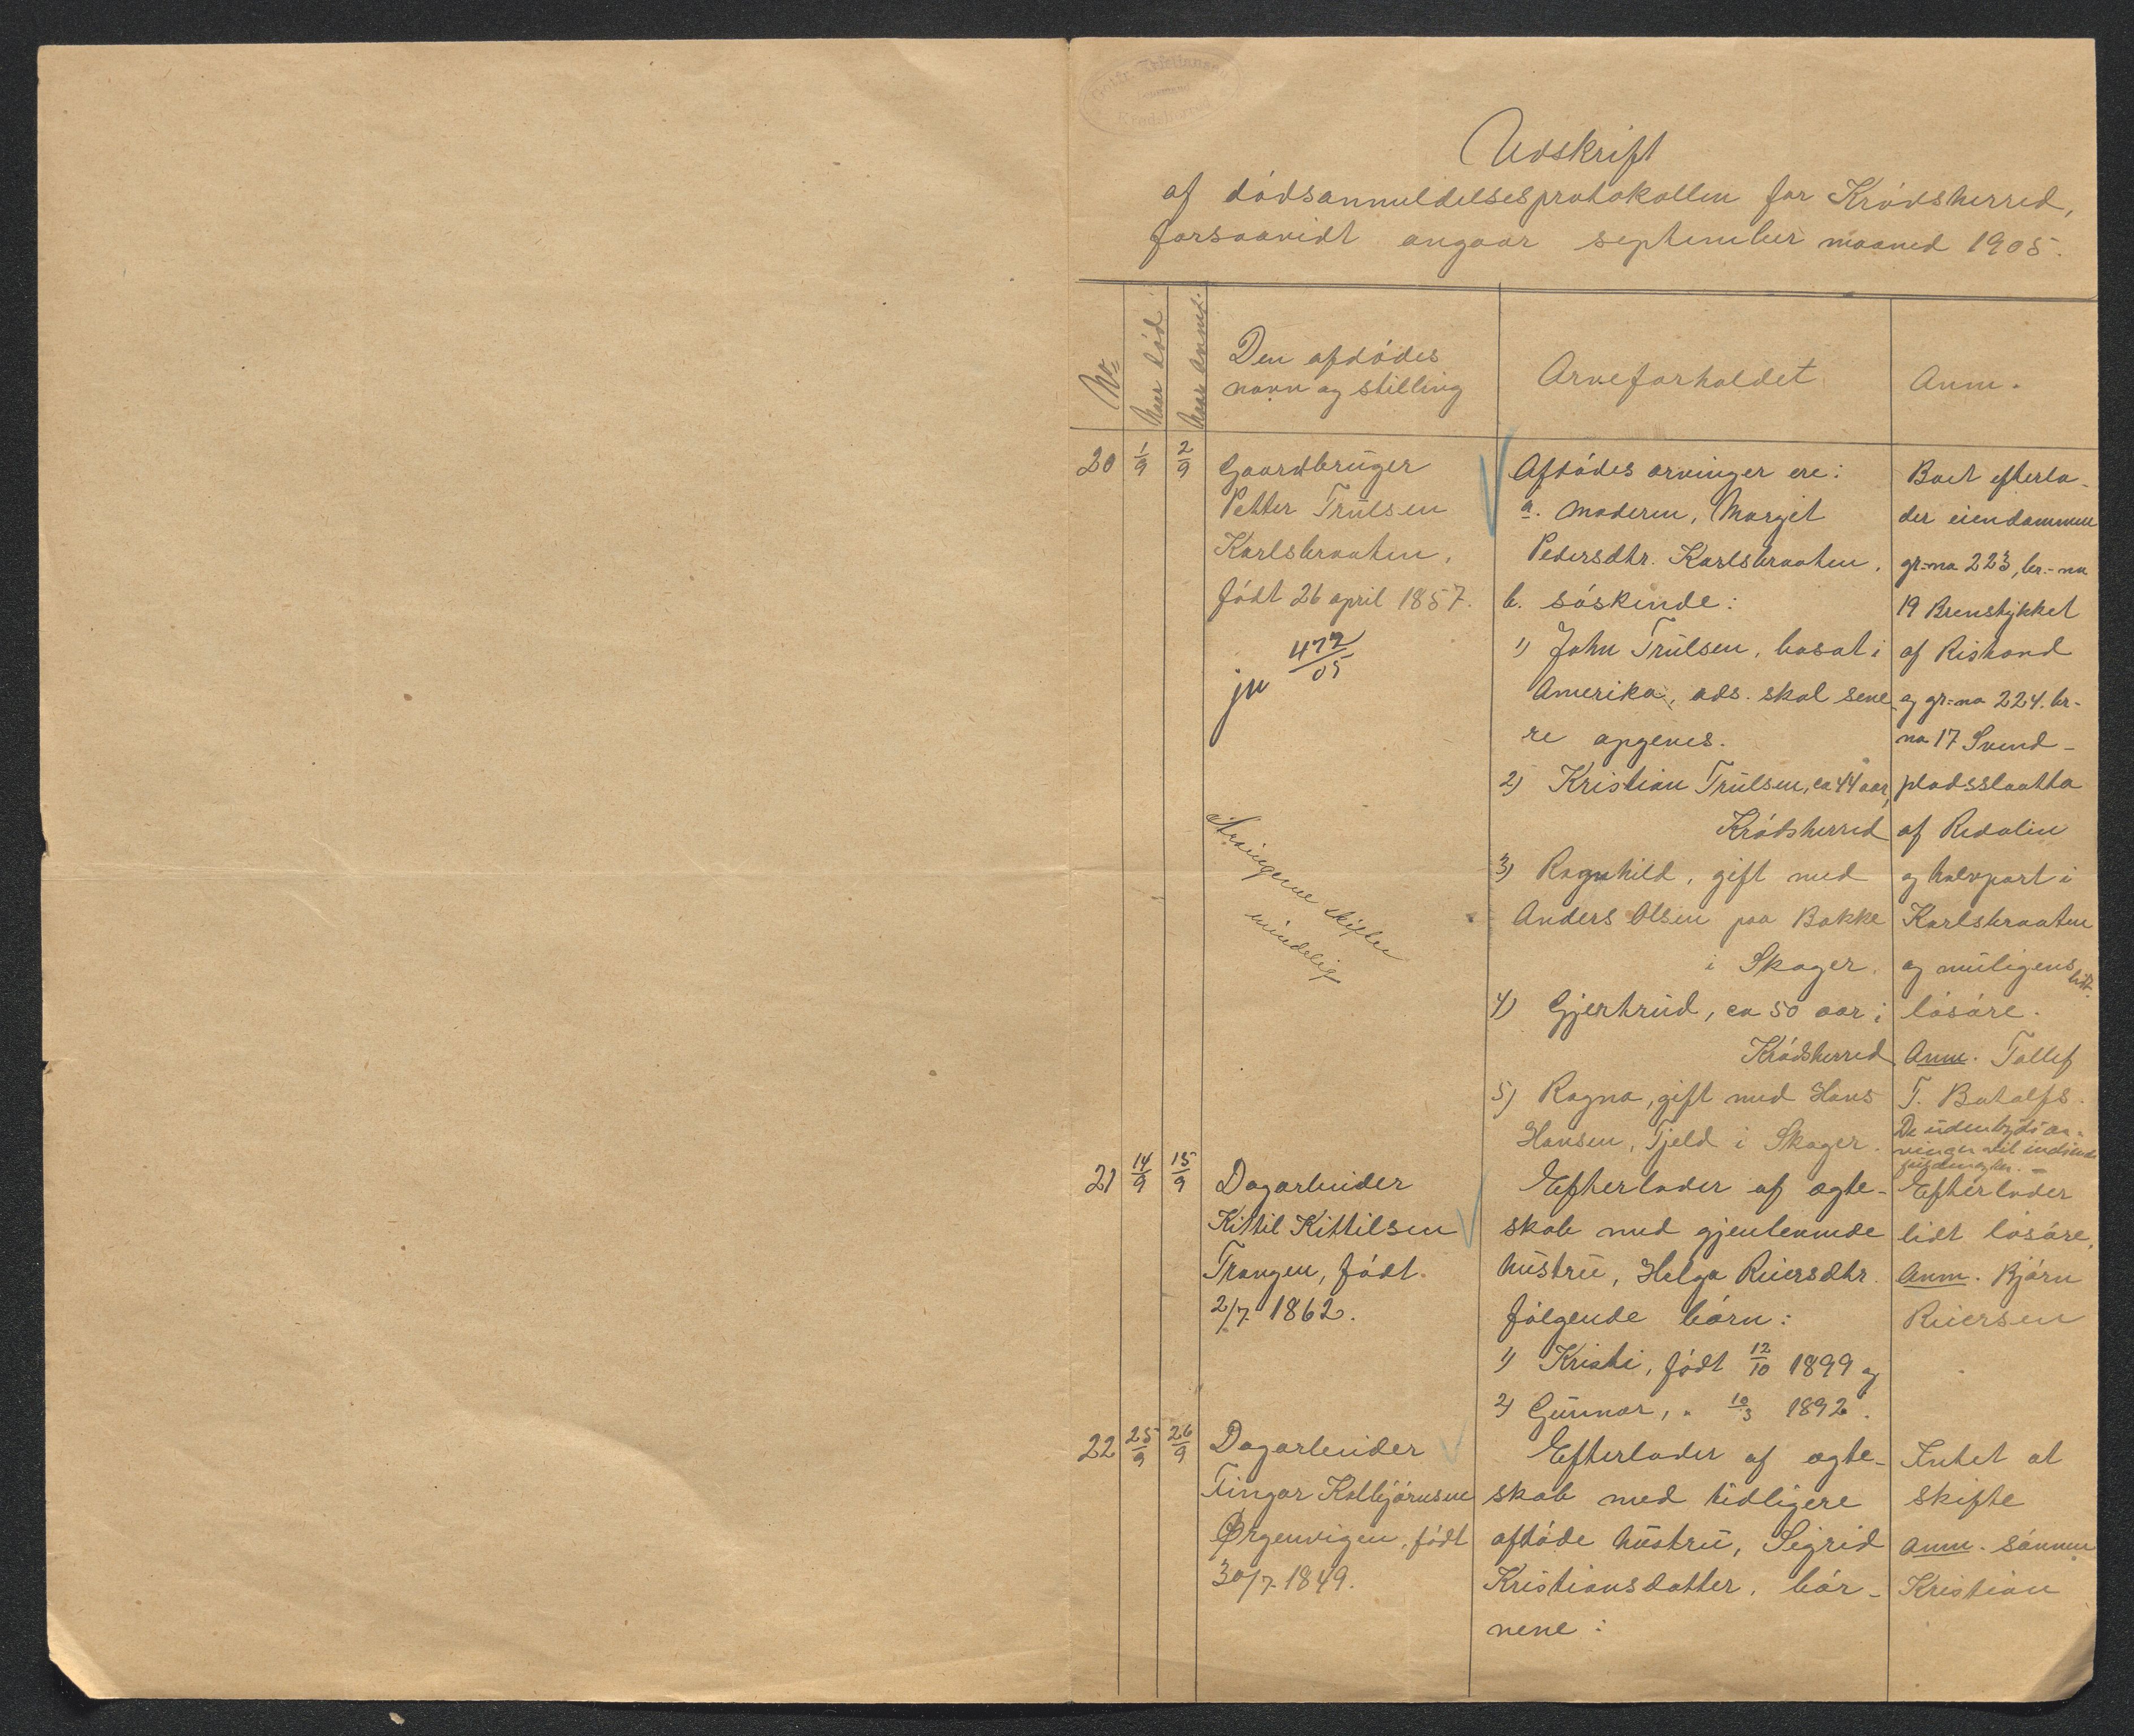 Udskrift
af dødsanmeldelsesprotokollen for Krødsherred,
forsaavidt angaar september maaned 1905.
No.
Naar død
Naar anm.
Den afdødes
navn og stilling
Arveforholdet
Anm.
20
1/9
2/9
Gaardbruger
Petter Trulsen
Karlsbraaten,
født 26 april 1857.
jn 472/05
Arvingerne skifter
mindelig
Afdødes arvinger ere:
a. Moderen, Margit
Pedersdtr. Karlsbraaten,
b. søskende:
1) John Trulsen, bosat i
Amerika, ads. skal sene-
re opgives.
2) Kristian Trulsen, ca 44 aar,
Krødsherred
3) Ragnhild, gift med
Anders Olsen paa Bakke
i Skoger.
4) Gjertrud, ca 50 aar i
Krødsherred
5) Ragna, gift med Hans
Hansen, Fjeld i Skoger.
Boet efterla-
der eiendommen
gr:no 223, br.-no
19 Brenstykket
af Riskand
og gr:no 224. br-
no 17 Svend-
pladsslaatta
af Redalin
og halvpart i
Karlsbraaten
og muligens
lidt
løsøre.
Anm. Tollef
T. Botolfs.
De udenbygds ar-
vinger vil indsende
21
14/9
15/9
Dagarbeider
Kittil Kittilsen
Trangen, født
2/7 1862.
Efterlader af ægte-
skab med gjenlevende
hustru, Helga Reiersdtr.
følgende børn:
1) Kristi, født 12/10 1899 og
2) Gunnar, " 10/3 1892.
Efterlader
lidt løsøre.
Anm. Bjørn
Reiersen
22
25/9
26/9
Dagarbeider
Fingar Kolbjørnsen
Ørgenvigen, født
30/7 1849.
Efterlader af ægte-
skab med tidligere
afdøde hustru, Sigrid
Kristiansdatter, bør-
nene:
Intet at
skifte
Anm. sønnen
Kristian